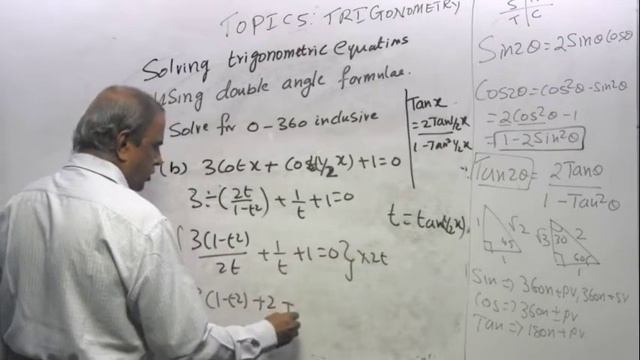 TOPICS: TRIGONOMETRY
Solving trigonometric equations
Using double angle formulae.
Solve for 0-360 inclusive
(b) 3Cotx + Cot(1/2x) + 1 = 0
3 ÷ (2t/1-t²) + 1/t + 1 = 0
{3(1-t²)/2t + 1/t + 1 = 0} x 2t
(1-t²) + 2 +
Tanx
= 2Tan1/2x/1-Tan²1/2x
t = tan(1/2x).
S
T | C
Sin2θ = 2SinθCosθ
Cos2θ = Cos²θ - Sin²θ
= 2Cos²θ - 1
= 1 - 2Sin²θ
Tan2θ = 2Tanθ/1 - Tan²θ
1 √2 45 1
√3 30 2 60 1
Sin => 360n + PV, 360n +
Cos => 360n ± PV
Tan => 180n + PV